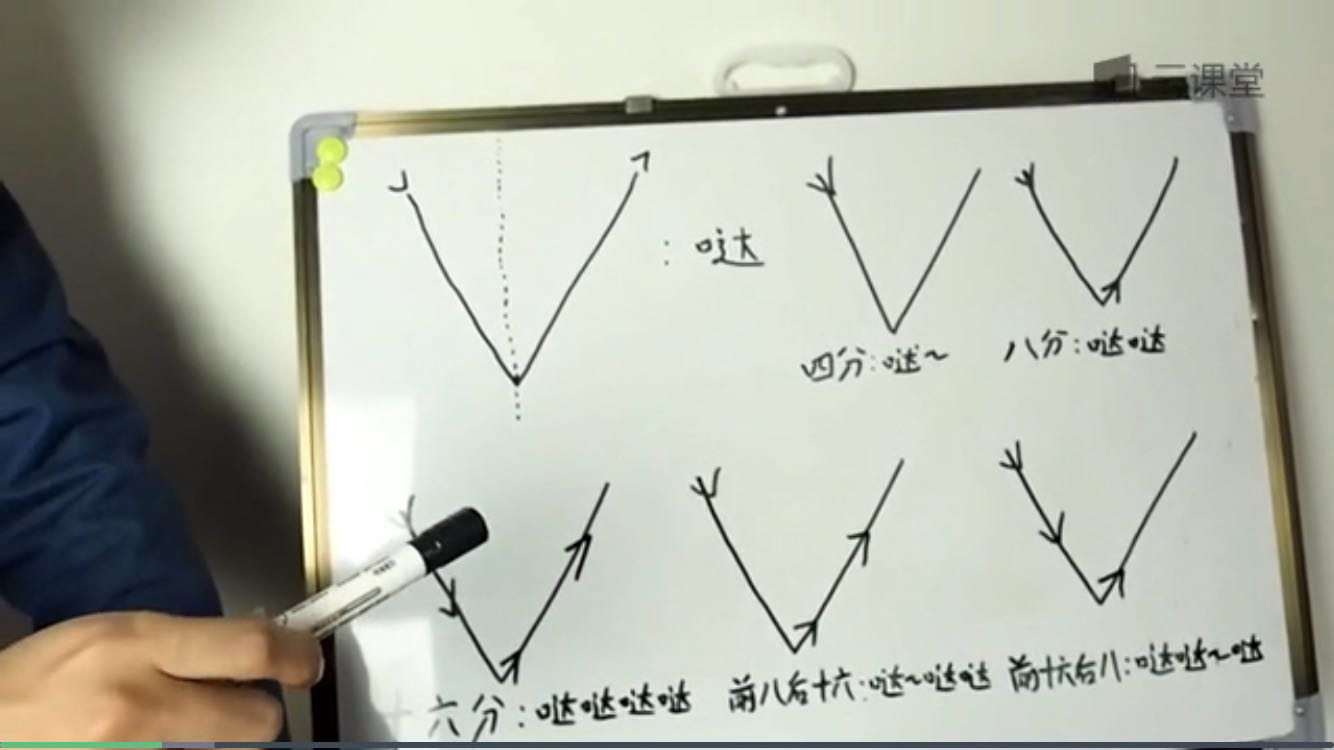 云课堂
：哒
四分：哒～
八分：哒哒
十六分：哒哒哒哒
前八后十六：哒～哒哒
前十六后八：哒哒～哒